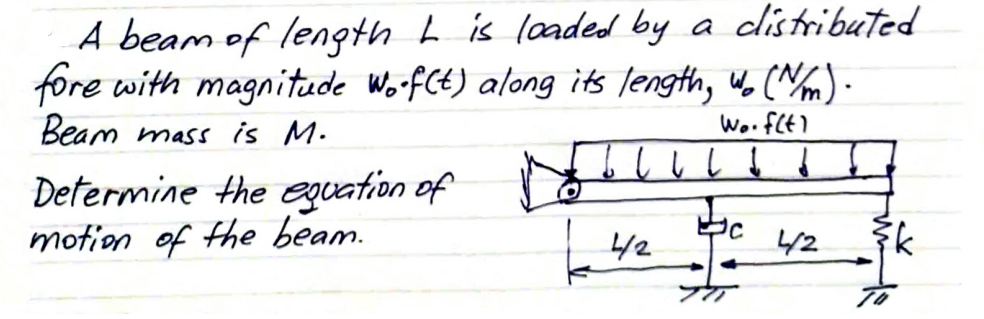 A beam of length L is loaded by a distributed
fore with magnitude W₀·f(t) along its length, W₀ (N/m).
Beam mass is M.
W₀·f(t)
Determine the equation of
motion of the beam.
L/2
c
L/2
k